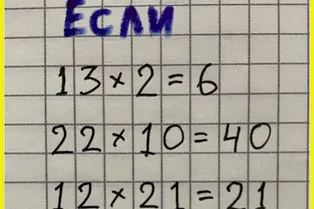 Если
13×2=6
22×10=40
12×21=21